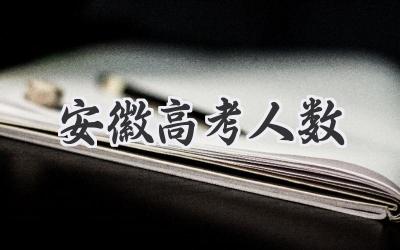 安徽高考人数